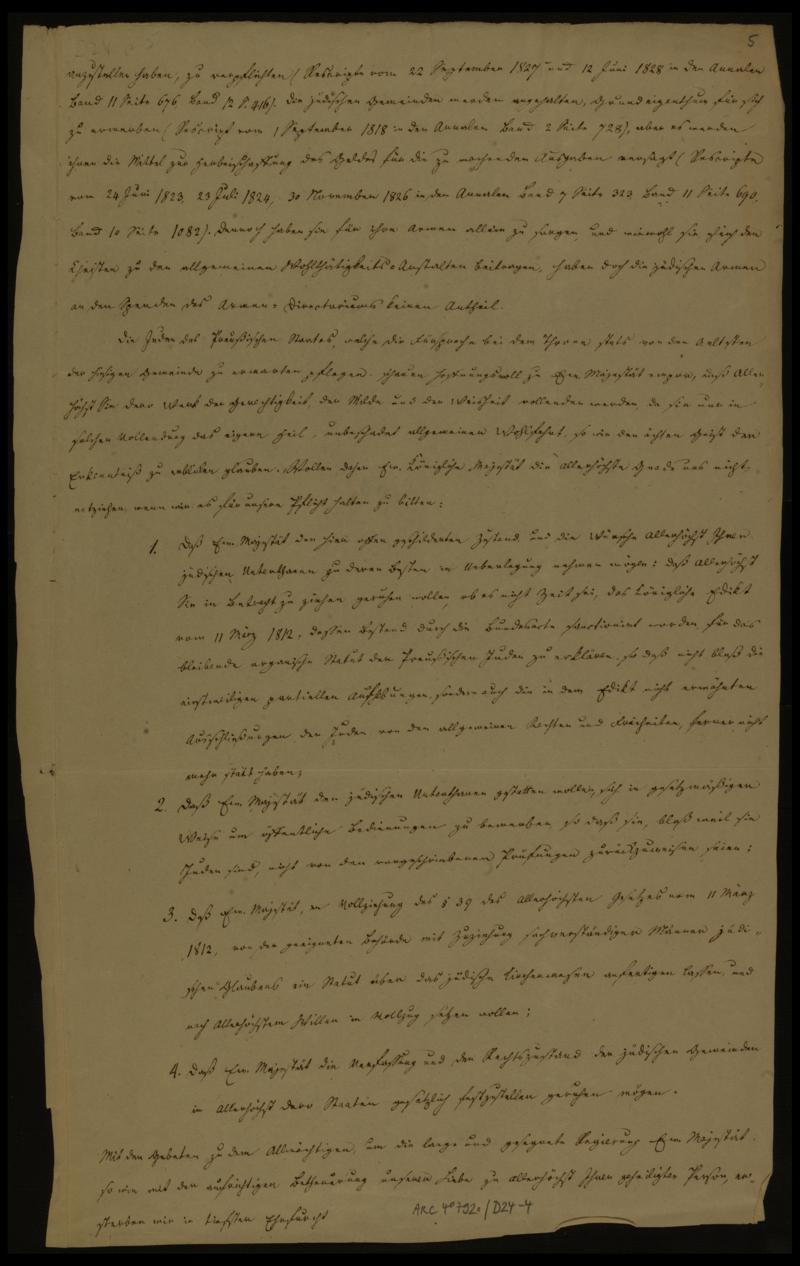 5
anzustellen haben, zu verpflichten (Rescripte vom 22 September 1827 und 12 Juni 1828 in den Annalen
Band 11 Seite 676 Band 12 S. 416). Die jüdischen Gemeinden werden angehalten, Grundeigenthum für sich
zu erwerben (Rescript vom 1 September 1818 in den Annalen Band 2 Seite 728), aber es werden
ihnen die Mittel zur Herbeischaffung des Geldes für die zu machenden Ausgaben versagt (Rescripte
vom 24 Juni 1823, 23 Juli 1824, 30 November 1826 in den Annalen Band 7 Seite 323 Band 11 Seite 690,
Band 10 Seite 1082). Dennoch haben sie für ihre Armen allein zu sorgen, und wiewohl sie gleich den
Christen zu den allgemeinen Wohlthätigkeits-Anstalten beitragen, haben doch die jüdischen Armen
an den Spenden des Armen-Directoriums keinen Antheil.
Die Juden des Preußischen Staates, welche die Fürsprache bei dem Throne stets von den Aeltesten
der hiesigen Gemeinde zu erwarten pflegen, schauen hoffnungsvoll zu Ew. Majestät empor, daß Aller-
höchst Sie dero Werk der Gerechtigkeit, der Milde und der Weisheit vollenden werden, da sie nur in
solcher Vollendung das eigene Heil, unbeschadet allgemeiner Wohlfahrt, so wie den ächten Geist der
Erkenntniß zu erblicken glauben. Wollen daher Ew. Königliche Majestät die Allerhöchste Gnade uns nicht
entziehen, wenn wir es für unsere Pflicht halten zu bitten:
1. Daß Ew. Majestät den hier offen geschilderten Zustand und die Wünsche Allerhöchst Ihrer
jüdischen Unterthanen zu deren Besten in Ueberlegung nehmen mögen: daß Allerhöchst
Sie in Betracht zu ziehen geruhen wollen, ob es nicht Zeit sei, das Königliche Edikt
vom 11 März 1812, dessen Bestand durch die Bundesacte sanctionirt worden, für das
bleibende organische Statut der Preußischen Juden zu erklären, so daß nicht bloß die
einstweiligen partiellen Aufhebungen, sondern auch die in dem Edikt nicht erwähnten
Ausschließungen der Juden von den allgemeinen Rechten und Freiheiten, ferner nicht
mehr statt haben;
2. Daß Ew. Majestät den jüdischen Unterthanen gestatten wollen, sich in gesetzmäßiger
Weise um öffentliche Bedienungen zu bewerben, so daß sie, bloß weil sie
Juden sind, nicht von den vorgeschriebenen Prüfungen zurückzuweisen seien;
3. Daß Ew. Majestät, in Vollziehung des § 39 des Allerhöchsten Gesetzes vom 11 März
1812, von der geeigneten Behörde mit Zuziehung sachverständiger Männer jüdi-
schen Glaubens ein Statut über das jüdische Kirchenwesen anfertigen lassen, und
nach Allerhöchstem Willen in Vollzug setzen wollen;
4. Daß Ew. Majestät die Verfassung und den Rechtszustand der jüdischen Gemeinden
in Allerhöchst dero Staaten gesetzlich festzustellen geruhen mögen.
Mit den Gebeten zu dem Allmächtigen, um die lange und gesegnete Regierung Ew. Majestät,
so wie mit der aufrichtigen Betheuerung unserer Liebe zu Allerhöchst Ihrer geheiligten Person, er-
sterben wir in tiefster Ehrfurcht
ARC 4° 792o/D24-4